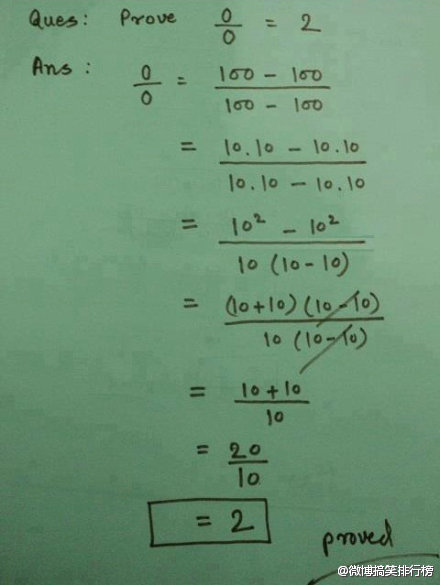 Ques: Prove 0/0 = 2
Ans: 0/0 = (100 - 100)/(100 - 100)
= (10.10 - 10.10)/(10.10 - 10.10)
= (10² - 10²)/(10 (10 - 10))
= ((10+10) (10-10))/(10 (10-10))
= (10+10)/10
= 20/10
= 2
proved
@微博搞笑排行榜